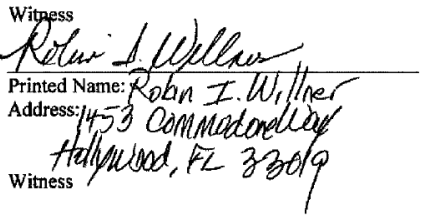 Witness
Robin I. Willner
Printed Name: Robin I. Willner
Address: 1453 Commodore Way
Hollywood, FL 33019
Witness